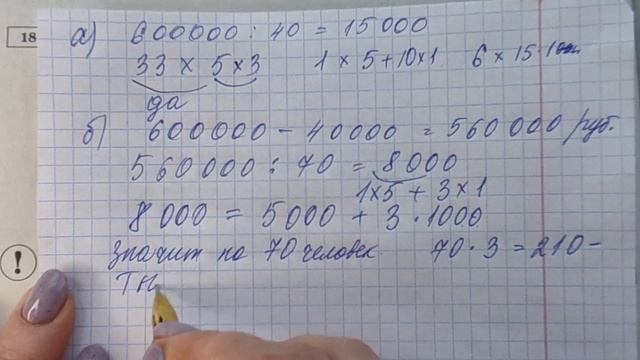 18
а) 600000 : 40 = 15000
33 × 5 × 3 1 × 5 + 10 × 1 6 × 15
да
б) 600000 - 40000 = 560000 руб.
560000 : 70 = 8000
1×5 + 3×1
8000 = 5000 + 3·1000
Значит на 70 человек 70·3 = 210 -
ТН
!